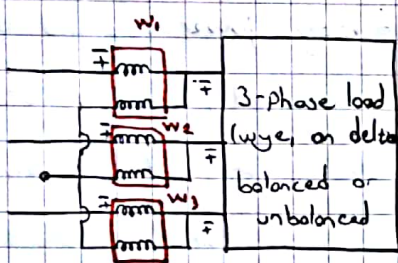 W1
∓
∓
3-phase load
(wye, or delta
balanced or
unbalanced
W2
∓
∓
W3
∓
∓